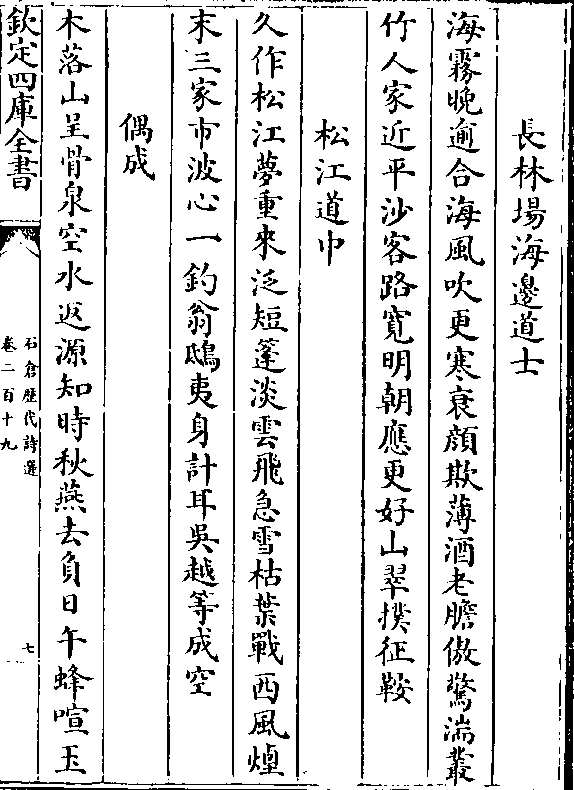 長林場海邊道士
海霧晚逾合海風吹更寒衰顔欺薄酒老膽傲驚湍叢
竹人家近平沙客路寛明朝應更好山翠撲征鞍
松江道中
久作松江夢重來泛短蓬淡雲飛急雪枯葉戰西風煙
末三家市波心一釣翁鴟夷身計耳吳越等成空
偶成
木落山呈骨泉空水返源知時秋燕去負日午蜂喧玉
欽定四庫全書
石倉歴代詩選
卷二百十九
七